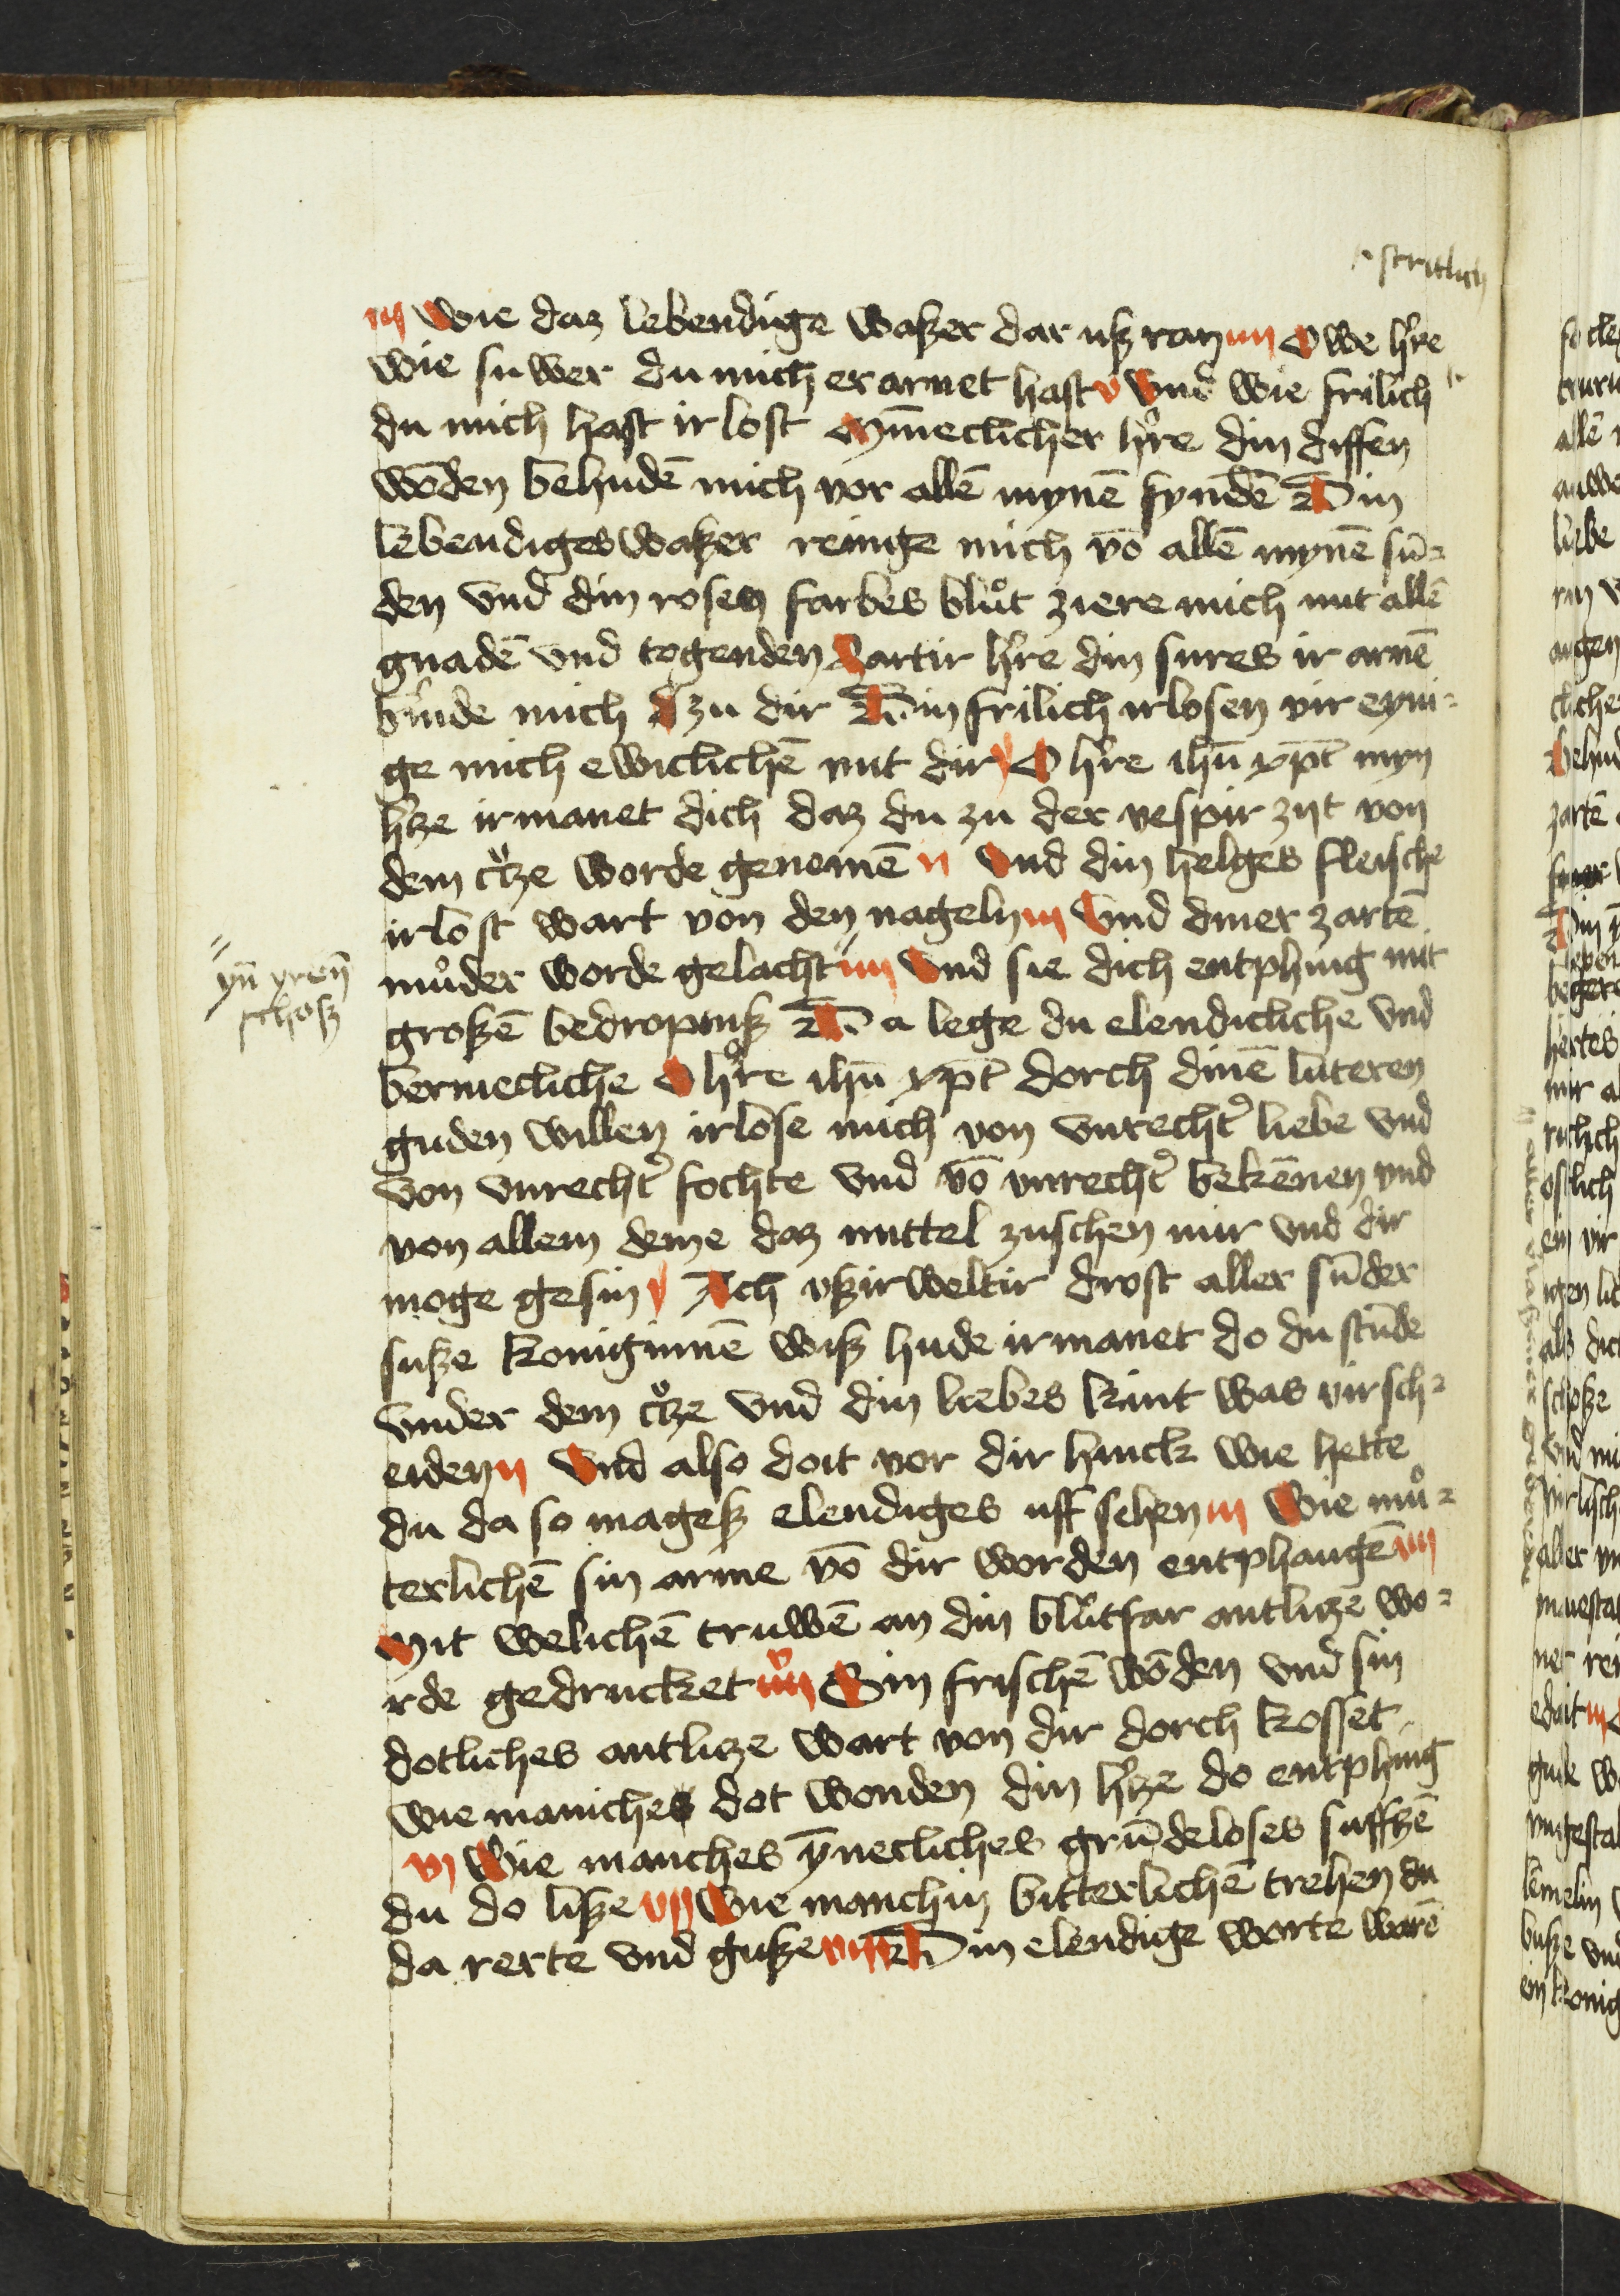 stritlich
iij Wie daz lebendige waßer dar uß ran iiij Owe hᵉre
wie suwer du mich erarnet hast v Vnd wie frilich
du mich hast irlost Mīneclicher hᵉre din diffen
wōden behudē mich vor allē mynē fyndē Din
lebendiges waßer reinige mich vō allē mynē sū-
den vnd din rosen farbes blůt ziere mich mit allē
gnadē vnd togenden Zartir hᵉre din sures ir arnē
binde mich zu dir Din frilich irlosen vir eyni-
ge mich ewiclichē mit dir O hᵉre ihū xp̄t myn
hᵉze irmanet dich daz du zu der vespir zijt von
dem cᵘͦze worde genomē ij Vnd din helges fleische
irlost wart von den nageln iij Vnd diner zartē
můder worde gelacht iiij Vnd sie dich entphing mit
yn̄ yren̄
schoß
großē bedropniß Da lege du elendicliche vnd
bermecliche O hᵉre ihū xp̄t dorch dinē luteren
guden willen irlose mich von vnrechtᵉ liebe vnd
von vnrechtᵉ fochte vnd vō vnrechtᵉ bekēnen vnd
von allem deme daz mittel zuschen mir vnd dir
moge gesin Ach vßirweltir drost aller sūder
suße koniginnē wiß hude irmanet do du stūde
vnder dem cᵘͦze vnd din liebes kint was virsch-
eiden ij Vnd also doit vor dir hinck wie hette
du da so mageß elendiges uff sehen iij Wie mů-
terlichē sin arme vō dir worden entphangē iiij
Mit welichē truwē an din blůtfar antlize wo-
rde gedrucket v Sin frischē wōden vnd sin
dotliches antlize wart von dir dorch kosset
wie maniches dot wonden din hᵉze do entphing
vi Wie manches ȳnecliches grūdeloses suffzē
du do liße vij Wie manchin bitterlichē trehen du
da rerte vnd guße viij Din elendige worte warē